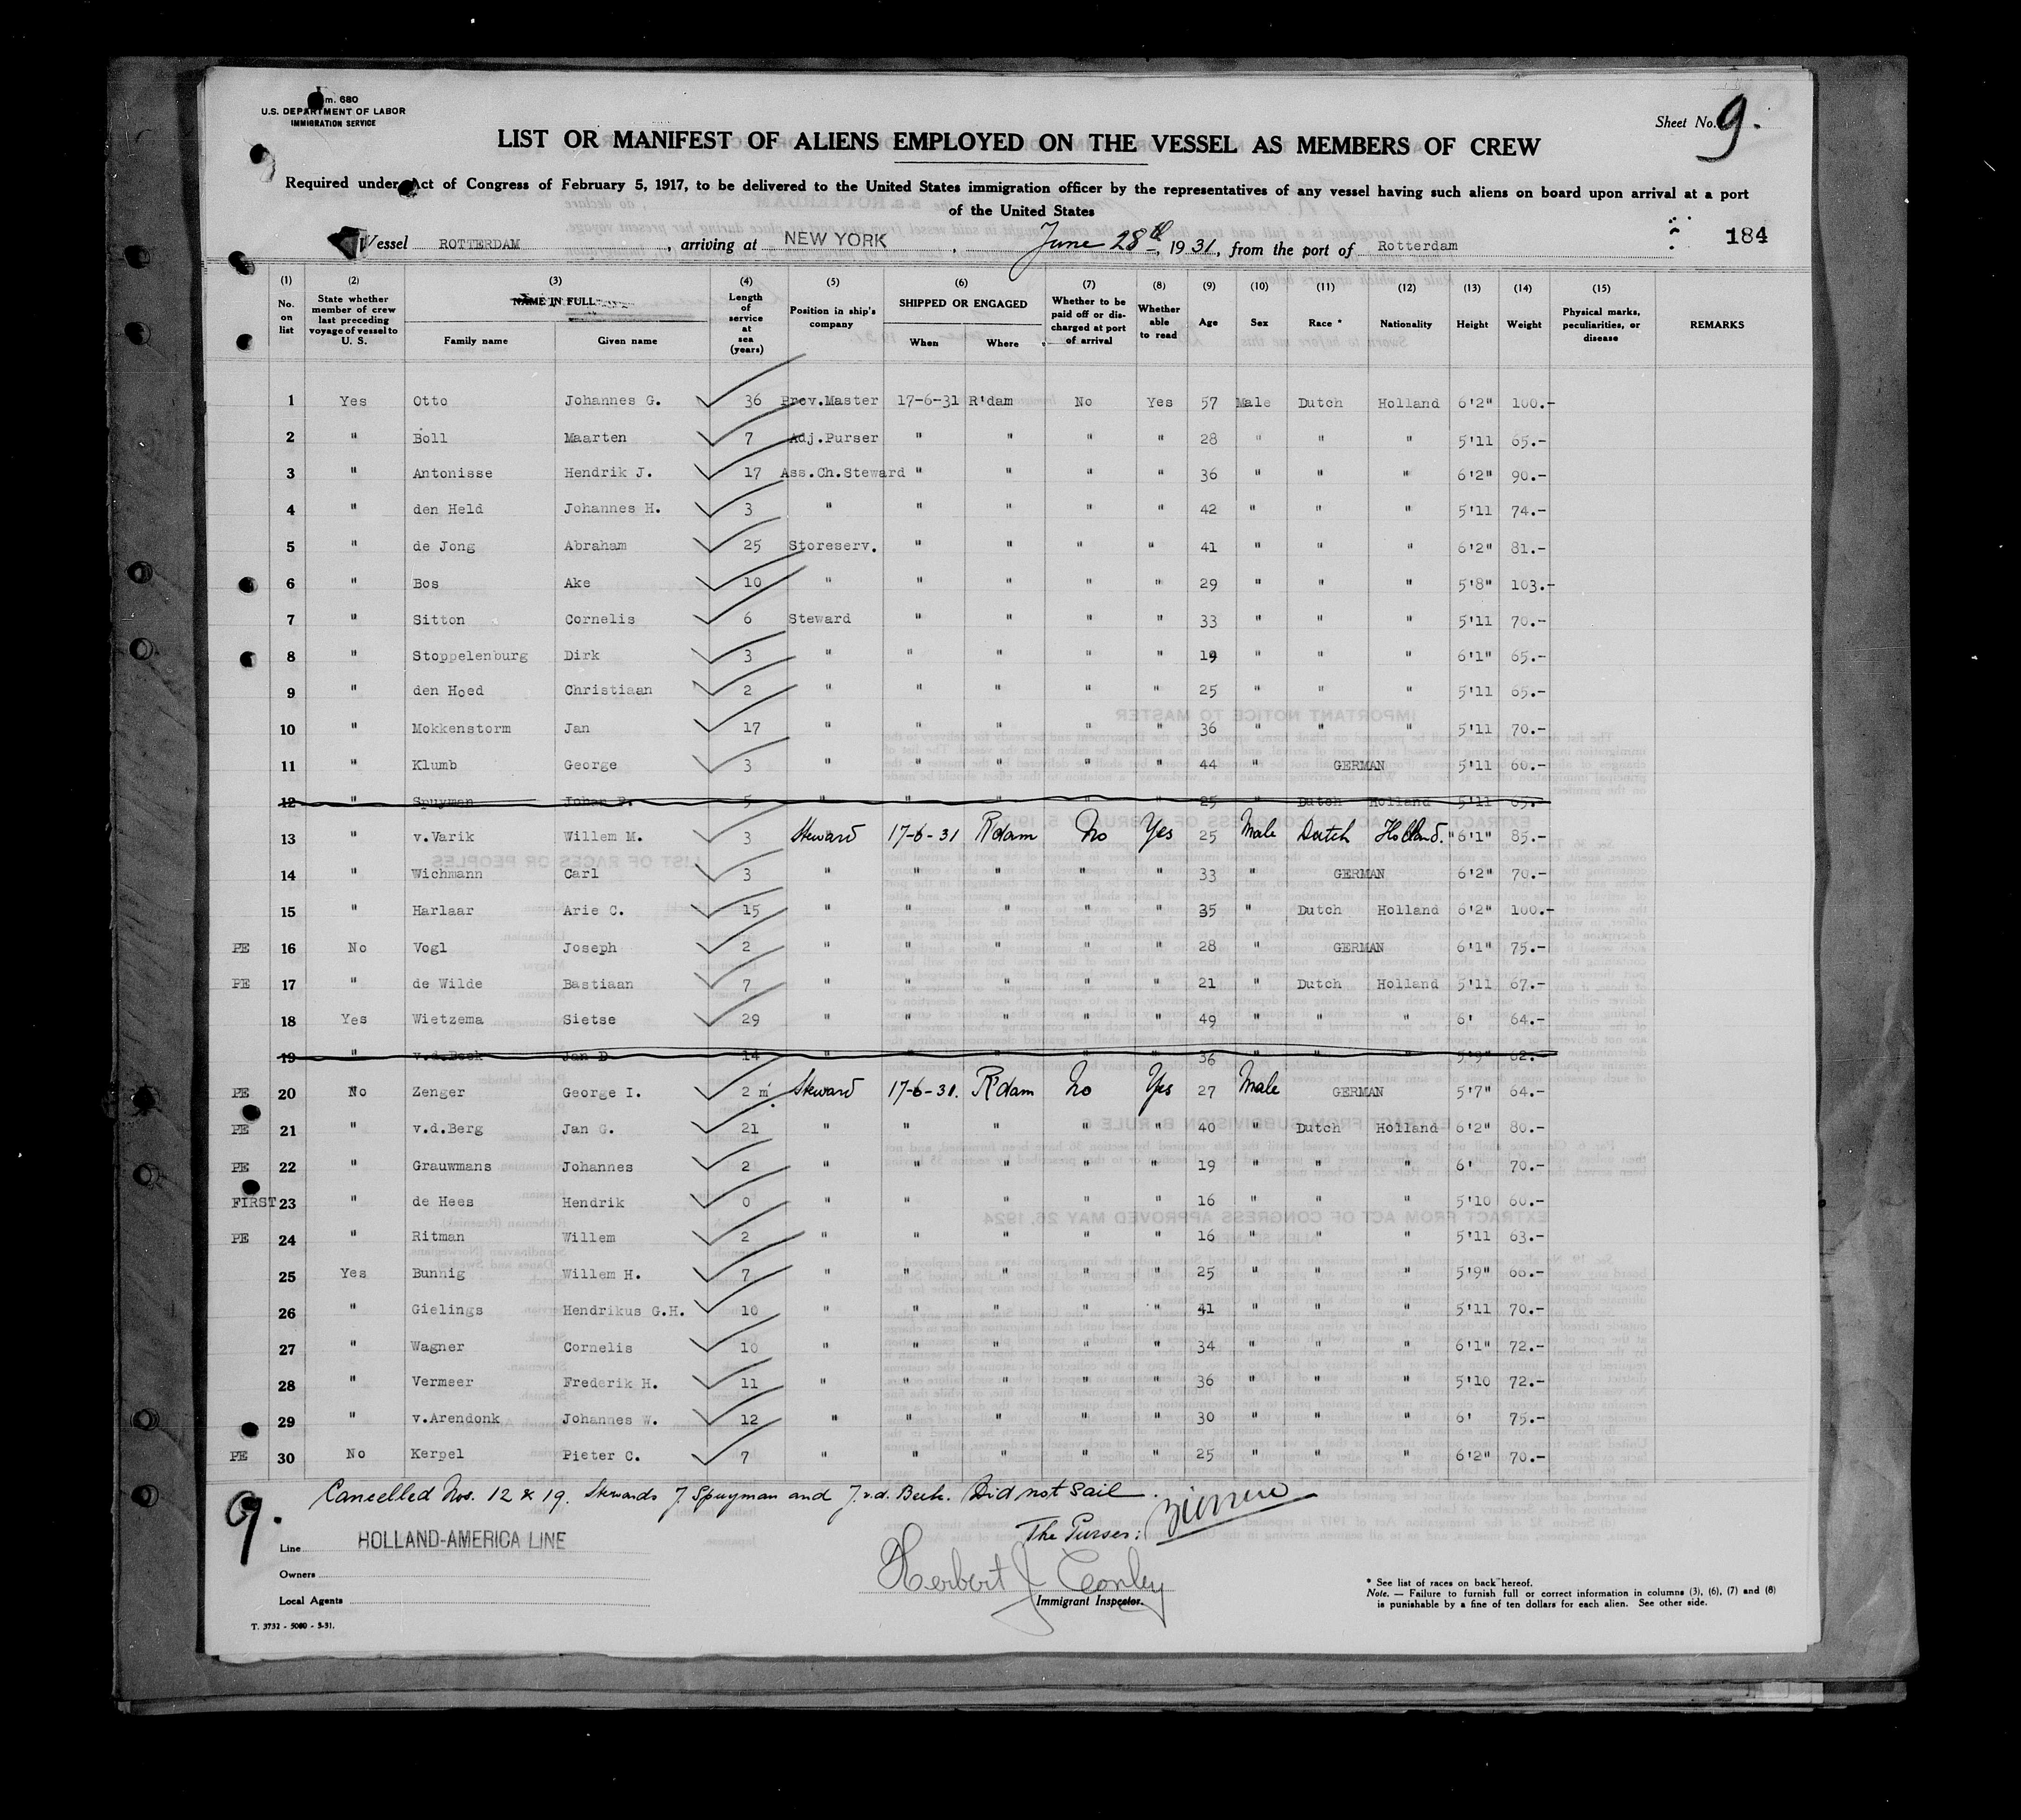 Sheet No. 9.
m. 680
U.S. DEPARTMENT OF LABOR
IMMIGRATION SERVICE
LIST OR MANIFEST OF ALIENS EMPLOYED ON THE VESSEL AS MEMBERS OF CREW
Required under Act of Congress of February 5, 1917, to be delivered to the United States immigration officer by the representatives of any vessel having such aliens on board upon arrival at a port
of the United States
Vessel ROTTERDAM , arriving at NEW YORK , June 28th, 1931, from the port of Rotterdam 184
(1) No. on list (2) State whether member of crew last preceding voyage of vessel to U. S. (3) NAME IN FULL Family name Given name (4) Length of service at sea (years) (5) Position in ship's company (6) SHIPPED OR ENGAGED When Where (7) Whether to be paid off or discharged at port of arrival (8) Whether able to read (9) Age (10) Sex (11) Race * (12) Nationality (13) Height (14) Weight (15) Physical marks, peculiarities, or disease REMARKS
1 Yes Otto Johannes G. 36 Prov.Master 17-6-31 R'dam No Yes 57 Male Dutch Holland 6'2" 100.-
2 " Boll Maarten 7 Adj.Purser " " " " 28 " " " 5'11 65.-
3 " Antonisse Hendrik J. 17 Ass.Ch.Steward " " " " 36 " " " 6'2" 90.-
4 " den Held Johannes H. 3 " " " " " 42 " " " 5'11 74.-
5 " de Jong Abraham 25 Storeserv. " " " " 41 " " " 6'2" 81.-
6 " Bos Ake 10 " " " " " 29 " " " 5'8" 103.-
7 " Sitton Cornelis 6 Steward " " " " 33 " " " 5'11 70.-
8 " Stoppelenburg Dirk 3 " " " " " 19 " " " 6'1" 65.-
9 " den Hoed Christiaan 2 " " " " " 25 " " " 5'11 65.-
10 " Mokkenstorm Jan 17 " " " " " 36 " " " 5'11 70.-
11 " Klumb George 3 " " " " " 44 " GERMAN 5'11 60.-
12 " Spuyman Johan P. 5 " " " " " 25 " Dutch Holland 5'11 65.-
13 " v.Varik Willem M. 3 Steward 17-6-31 R'dam No Yes 25 Male Dutch Holland. 6'1" 85.-
14 " Wichmann Carl 3 " " " " " 33 " GERMAN 6'2" 70.-
15 " Harlaar Arie C. 15 " " " " " 35 " Dutch Holland 6'2" 100.-
PE 16 No Vogl Joseph 2 " " " " " 28 " GERMAN 6'1" 75.-
PE 17 " de Wilde Bastiaan 7 " " " " " 21 " Dutch Holland 5'11 67.-
18 Yes Wietzema Sietse 29 " " " " " 49 " " " 6' 64.-
19 " v.d.Beek Jan D 14 " " " " " 36 " " " 5'9" 62.-
PE 20 No Zenger George I. 2 m. Steward 17-6-31. R'dam No Yes 27 Male GERMAN 5'7" 64.-
PE 21 " v.d.Berg Jan G. 21 " " " " " 40 " Dutch Holland 6'2" 80.-
PE 22 " Grauwmans Johannes 2 " " " " " 19 " " " 6' 70.-
FIRST 23 " de Hees Hendrik 0 " " " " " 16 " " " 5'10 60.-
PE 24 " Ritman Willem 2 " " " " " 16 " " " 5'11 63.-
25 Yes Bunnig Willem H. 7 " " " " " 25 " " " 5'9" 66.-
26 " Gielings Hendrikus G.H. 10 " " " " " 41 " " " 5'11 70.-
27 " Wagner Cornelis 10 " " " " " 34 " " " 6'1" 72.-
28 " Vermeer Frederik H. 11 " " " " " 36 " " " 5'10 72.-
29 " v.Arendonk Johannes W. 12 " " " " " 30 " " " 6' 75.-
PE 30 No Kerpel Pieter C. 7 " " " " " 25 " " " 6'2" 70.-
Cancelled Nos. 12 & 19. Stewards J. Spuyman and J.v.d. Beek. Did not sail.
9.
The Purser:
Line HOLLAND-AMERICA LINE
Owners
Local Agents
Herbert J Conley
Immigrant Inspector.
* See list of races on back hereof.
Note. — Failure to furnish full or correct information in columns (3), (6), (7) and (8)
is punishable by a fine of ten dollars for each alien. See other side.
T. 3732 - 5000 - 3-31.